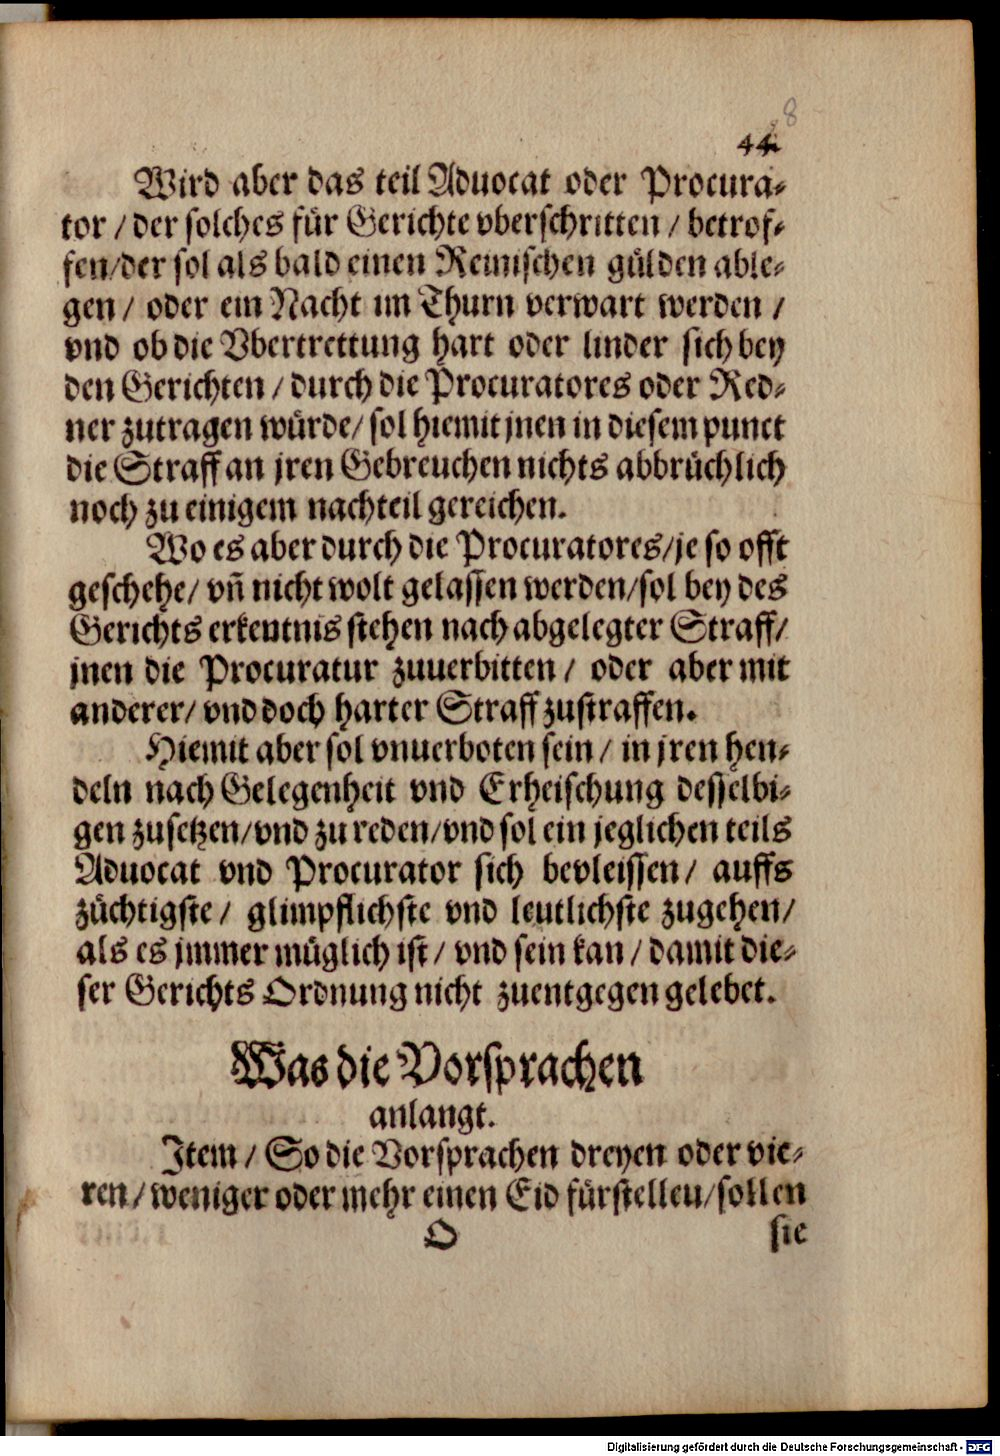 44
8
Wird aber das teil Aduocat oder Procura-
tor / der solches für Gerichte vberschritten / betrof-
fen/der sol als bald einen Reinischen gülden able-
gen / oder ein Nacht im Thurn verwart werden /
vnd ob die Vbertrettung hart oder linder sich bey
den Gerichten / durch die Procuratores oder Red-
ner zutragen würde/ sol hiemit jnen in diesem punct
die Straff an jren Gebreuchen nichts abbrüchlich
noch zu einigem nachteil gereichen.
Wo es aber durch die Procuratores/je so offt
geschehe/ vñ nicht wolt gelassen werden/sol bey des
Gerichts erkentnis stehen nach abgelegter Straff/
jnen die Procuratur zuuerbitten / oder aber mit
anderer/ vnd doch harter Straff zustraffen.
Hiemit aber sol vnuerboten sein / in jren hen-
deln nach Gelegenheit vnd Erheischung desselbi-
gen zusetzen/vnd zu reden/vnd sol ein jeglichen teils
Aduocat vnd Procurator sich bevleissen / auffs
züchtigste / glimpflichste vnd leutlichste zugehen/
als es jmmer müglich ist / vnd sein kan / damit die-
ser Gerichts Ordnung nicht zuentgegen gelebet.
Was die Vorsprachen
anlangt.
Item / So die Vorsprachen dreyen oder vie-
ren / weniger oder mehr einen Eid fürstellen/sollen
O
sie
Digitalisierung gefördert durch die Deutsche Forschungsgemeinschaft - DFG